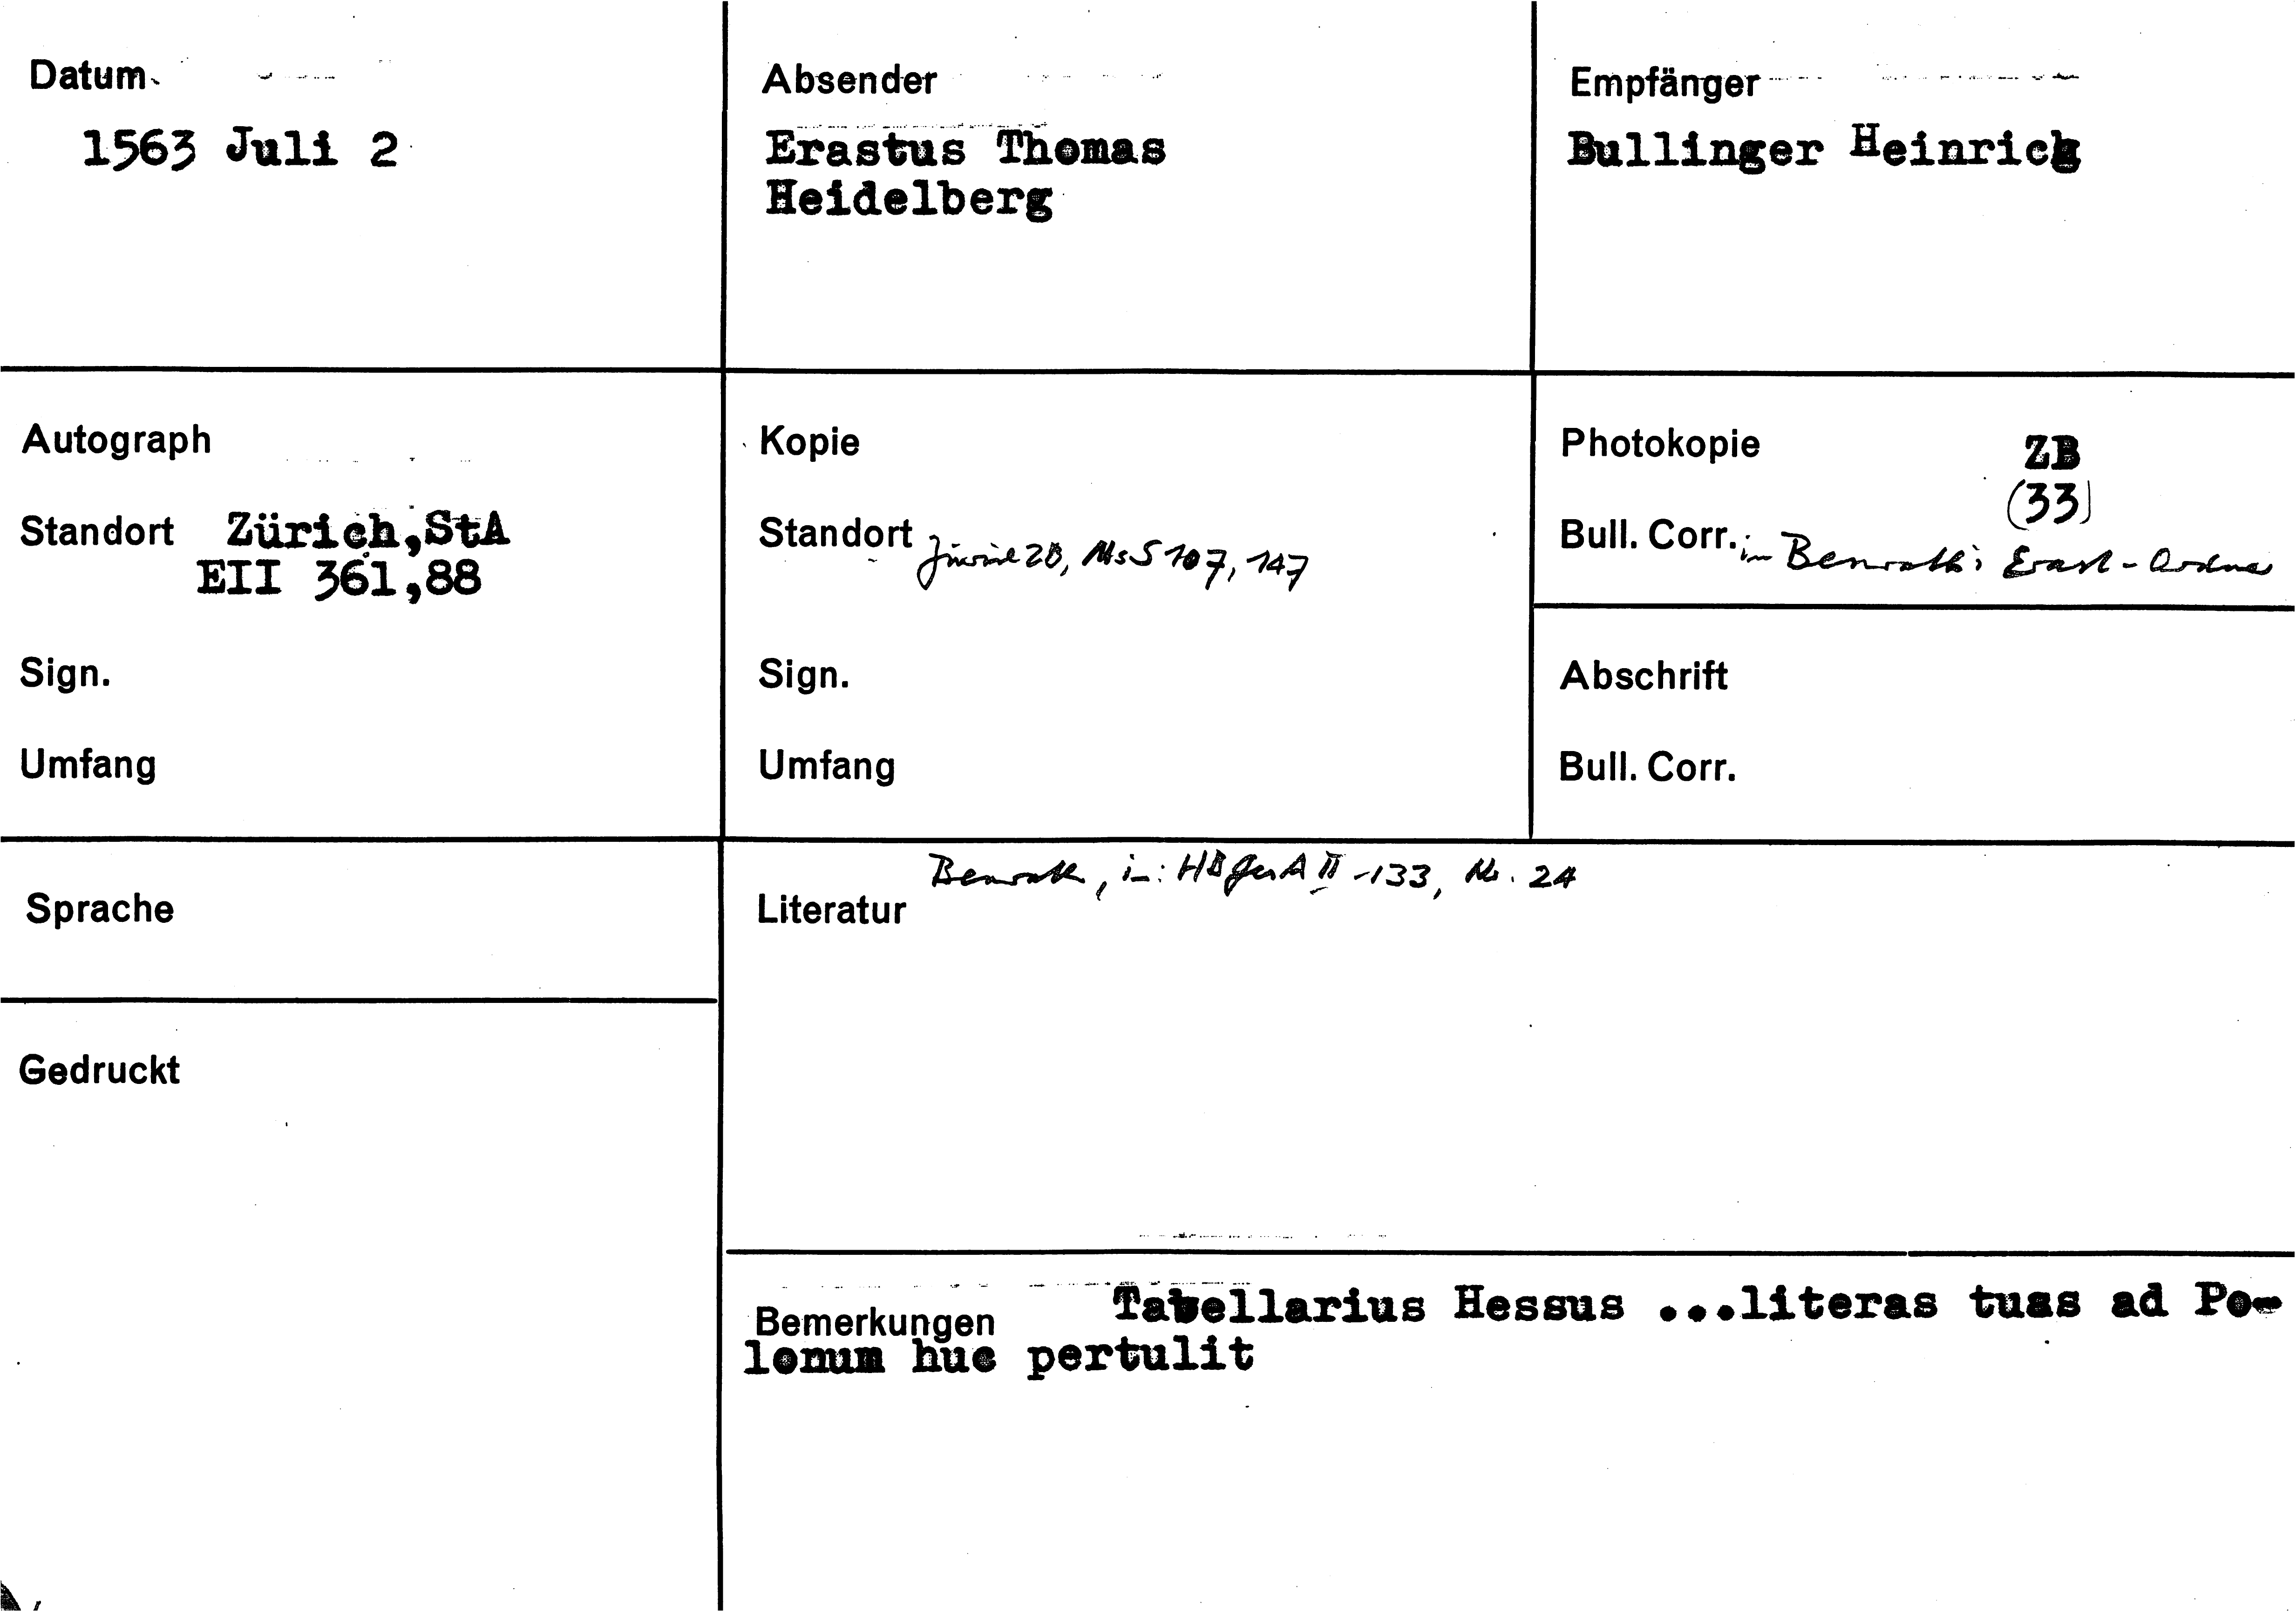 Datum
1563 Juli 2
Absender
Erastus Thomas
Heidelberg
Empfänger
Bullinger Heinrich
Autograph
Standort Zürich,StA
EII 361,88
Sign.
Umfang
Kopie
Standort Zürich ZB, Ms S 107, 147
Sign.
Umfang
Photokopie ZB
(33)
Bull. Corr. in Benrath's Erast-Ordner
Abschrift
Bull. Corr.
Sprache
Gedruckt
Benrath, in: HBGesA II -133, Nr. 24
Literatur
Bemerkungen Tabellarius Hessus ...literas tuas ad Po-
lonum huc pertulit